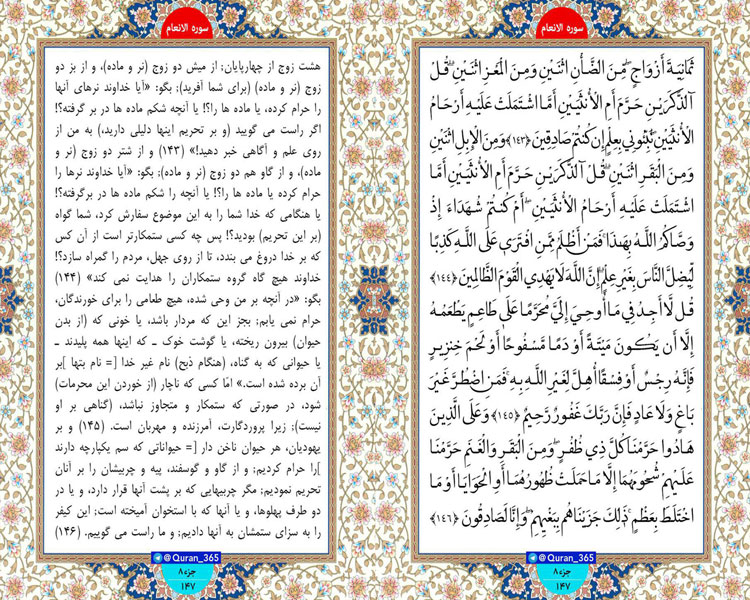 سوره الانعام
ثَمَانِيَةَ أَزْوَاجٍ ۖ مِّنَ الضَّأْنِ اثْنَيْنِ وَمِنَ الْمَعْزِ اثْنَيْنِ ۗ قُلْ
آلذَّكَرَيْنِ حَرَّمَ أَمِ الْأُنثَيَيْنِ أَمَّا اشْتَمَلَتْ عَلَيْهِ أَرْحَامُ
الْأُنثَيَيْنِ ۖ نَبِّئُونِي بِعِلْمٍ إِن كُنتُمْ صَادِقِينَ ﴿١٤٣﴾ وَمِنَ الْإِبِلِ اثْنَيْنِ
وَمِنَ الْبَقَرِ اثْنَيْنِ ۗ قُلْ آلذَّكَرَيْنِ حَرَّمَ أَمِ الْأُنثَيَيْنِ أَمَّا
اشْتَمَلَتْ عَلَيْهِ أَرْحَامُ الْأُنثَيَيْنِ ۖ أَمْ كُنتُمْ شُهَدَاءَ إِذْ
وَصَّاكُمُ اللَّهُ بِهَٰذَا ۚ فَمَنْ أَظْلَمُ مِمَّنِ افْتَرَىٰ عَلَى اللَّهِ كَذِبًا
لِّيُضِلَّ النَّاسَ بِغَيْرِ عِلْمٍ ۗ إِنَّ اللَّهَ لَا يَهْدِي الْقَوْمَ الظَّالِمِينَ ﴿١٤٤﴾
قُل لَّا أَجِدُ فِي مَا أُوحِيَ إِلَيَّ مُحَرَّمًا عَلَىٰ طَاعِمٍ يَطْعَمُهُ
إِلَّا أَن يَكُونَ مَيْتَةً أَوْ دَمًا مَّسْفُوحًا أَوْ لَحْمَ خِنزِيرٍ
فَإِنَّهُ رِجْسٌ أَوْ فِسْقًا أُهِلَّ لِغَيْرِ اللَّهِ بِهِ ۚ فَمَنِ اضْطُرَّ غَيْرَ
بَاغٍ وَلَا عَادٍ فَإِنَّ رَبَّكَ غَفُورٌ رَّحِيمٌ ﴿١٤٥﴾ وَعَلَى الَّذِينَ
هَادُوا حَرَّمْنَا كُلَّ ذِي ظُفُرٍ ۖ وَمِنَ الْبَقَرِ وَالْغَنَمِ حَرَّمْنَا
عَلَيْهِمْ شُحُومَهُمَا إِلَّا مَا حَمَلَتْ ظُهُورُهُمَا أَوِ الْحَوَايَا أَوْ مَا
اخْتَلَطَ بِعَظْمٍ ۚ ذَٰلِكَ جَزَيْنَاهُم بِبَغْيِهِمْ ۖ وَإِنَّا لَصَادِقُونَ ﴿١٤٦﴾
@Quran_365
جزء ۸
۱۴۷
سوره الانعام
هشت زوج از چهارپایان; از میش دو زوج (نر و ماده)، و از بز دو
زوج (نر و ماده) (برای شما آفرید); بگو: «آیا خداوند نرهای آنها
را حرام کرده، یا ماده ها را؟! یا آنچه شکم ماده ها در بر گرفته؟!
اگر راست می گویید (و بر تحریم اینها دلیلی دارید)، به من از
روی علم و آگاهی خبر دهید!» (۱۴۳) و از شتر دو زوج (نر و
ماده)، و از گاو هم دو زوج (نر و ماده); بگو: «آیا خداوند نرها را
حرام کرده یا ماده ها را؟! یا آنچه را شکم ماده ها در برگرفته؟!
یا هنگامی که خدا شما را به این موضوع سفارش کرد، شما گواه
(بر این تحریم) بودید؟! پس چه کسی ستمکارتر است از آن کس
که بر خدا دروغ می بندد، تا از روی جهل، مردم را گمراه سازد؟!
خداوند هیچ گاه گروه ستمکاران را هدایت نمی کند» (۱۴۴)
بگو: «در آنچه بر من وحی شده، هیچ طعامی را برای خورندگان،
حرام نمی یابم; بجز این که مردار باشد، یا خونی که (از بدن
حیوان) بیرون ریخته، یا گوشت خوک ـ که اینها همه پلیدند ـ
یا حیوانی که به گناه، (هنگام ذبح) نام غیر خدا [= نام بتها ]بر
آن برده شده است.» امّا کسی که ناچار (از خوردن این محرمات)
شود، در صورتی که ستمکار و متجاوز نباشد، (گناهی بر او
نیست); زیرا پروردگارت، آمرزنده و مهربان است. (۱۴۵) و بر
یهودیان، هر حیوان ناخن دار [= حیواناتی که سم یکپارچه دارند
]را حرام کردیم; و از گاو و گوسفند، پیه و چربیشان را بر آنان
تحریم نمودیم; مگر چربیهایی که بر پشت آنها قرار دارد، و یا در
دو طرف پهلوها، و یا آنها که با استخوان آمیخته است; این کیفر
را به سزای ستمشان به آنها دادیم; و ما راست می گوییم. (۱۴۶)
@Quran_365
جزء ۸
۱۴۷